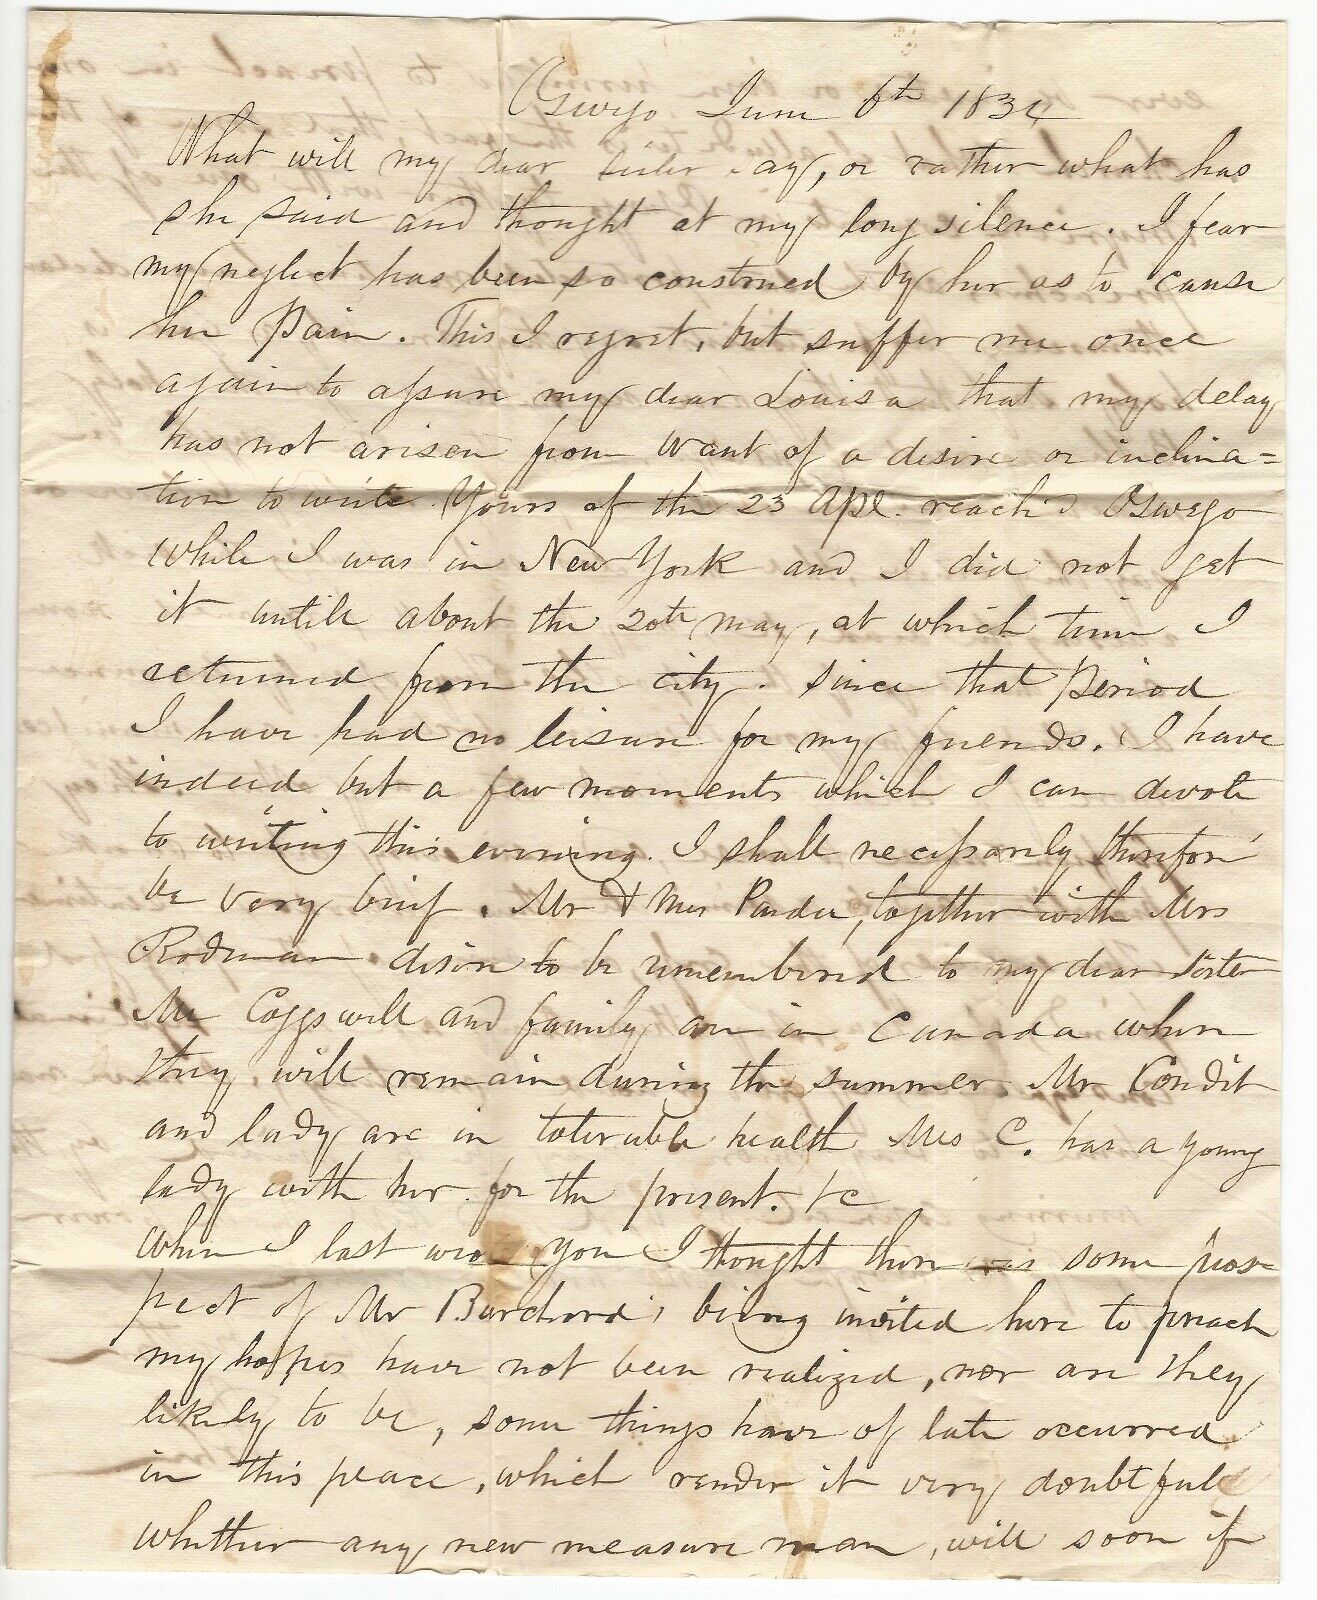 Oswego June 6th 1834
What will my dear sister say, or rather what has
she said and thought at my long silence. I fear
my neglect has been so construed by her as to cause
her Pain. This I regret, but suffer me once
again to assure my dear Louisa that my delay
has not arisen from want of a desire or inclina=
tion to write Yours of the 23 Apl. reach'd Oswego
while I was in New York and I did not get
it untill about the 20th may, at which time I
returned from the city. since that Period
I have had no leisure for my friends. I have
indeed but a few moments which I can devote
to writing this evening. I shall necessarily therefore
be very brief. Mr & Mrs Pardee, together with Mrs
Rodman desire to be remembered to my dear sister
Mr Coggswell and family are in Canada where
they will remain during the summer. Mr Condit
and lady are in tolerable health Mrs C. has a young
lady with her for the present. &c
When I last wrote you I thought there was some pros=
pect of Mr Burchard's being invited here to preach
my hopes have not been realized, nor are they
likely to be, some things have of late occurred
in this place, which render it very doubtfull
whether any new measure man, will soon if